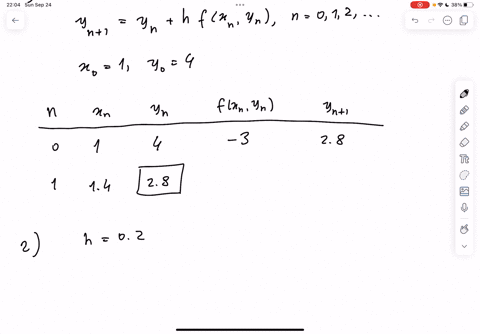 22:04 Sun Sep 24 38%
y_{n+1} = y_n + h f(x_n, y_n), n = 0, 1, 2, ...
x_0 = 1, y_0 = 4
n x_n y_n f(x_n, y_n) y_{n+1}
0 1 4 -3 2.8
1 1.4 2.8
2) h = 0.2